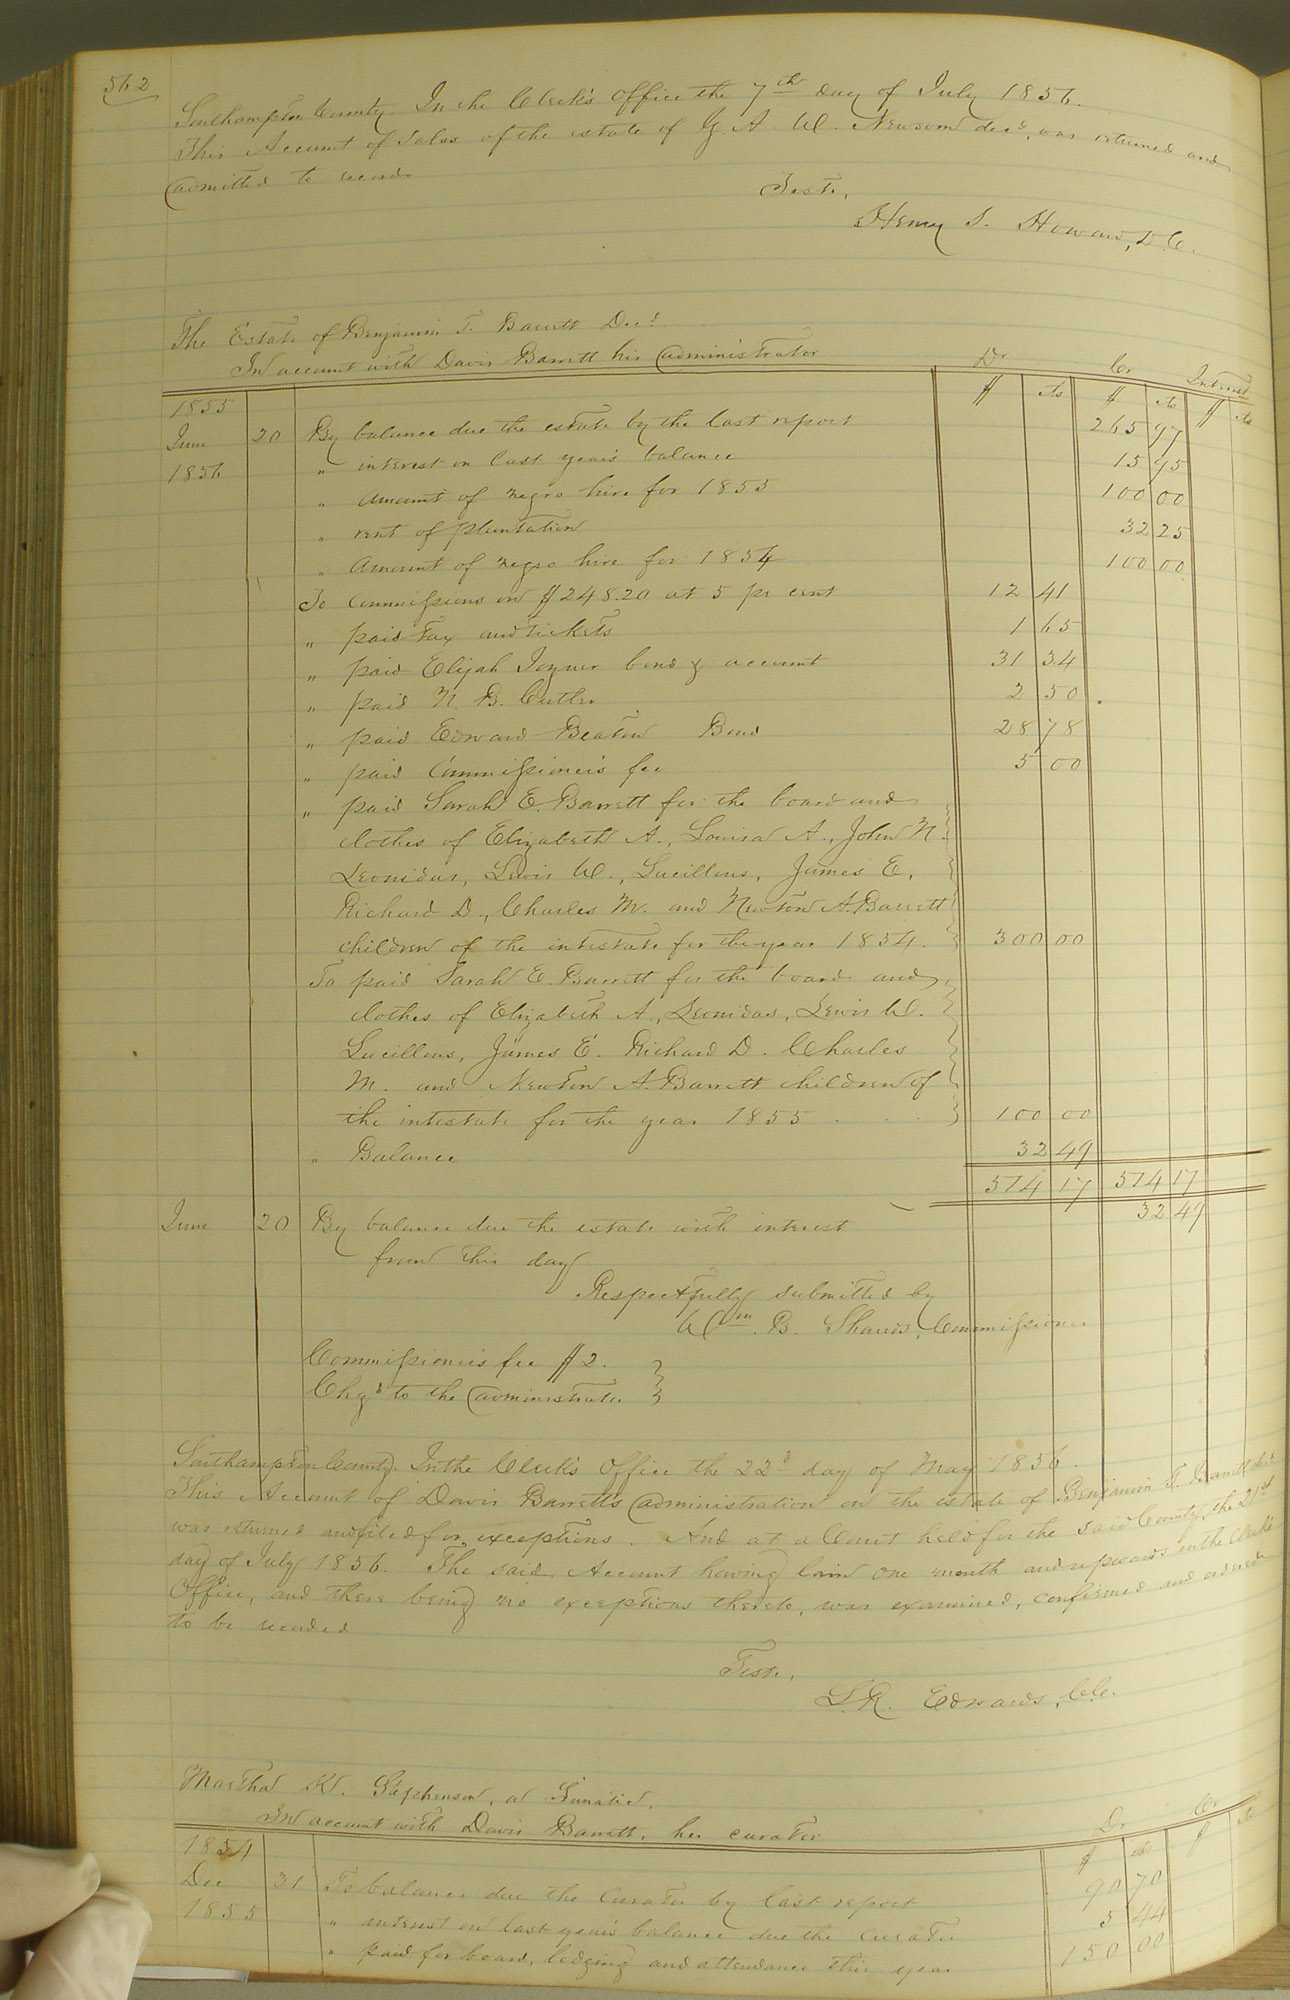 562
Southampton County. In the Clerk's Office the 7th day of July 1856.
This Account of Sales of the estate of G. A. W. Newsom decd, was returned and
admitted to record
Teste,
Henry S. Howard, D.C.
The Estate of Benjamin T. Barrett Decd.
In account with Davis Barrett his administrator Dr Cr Interest
$ cts $ cts $ cts
1855
June 20 By balance due the estate by the last report 265 97
1856 " interest on last year's balance 15 95
" Amount of negro hire for 1855 100 00
" rent of plantation 32 25
" Amount of negro hire for 1854 100 00
To commissions on $248.20 at 5 pr cent 12 41
" paid tax and tickets 1 65
" paid Elijah Joyner bond & account 31 34
" paid N. B. Cutler 2 50
" paid Edward Beaton Bond 28 78
" paid Commissioner's fee 5 00
" paid Sarah E. Barrett for the board and
clothes of Elizabeth A., Louisa A., John N.
Leonidas, Lewis W., Lucillous, James E,
Richard D., Charles M. and Newton A. Barrett
children of the intestate for the year 1854. 300 00
To paid Sarah E. Barrett for the board and
clothes of Elizabeth A., Leonidas, Lewis W.
Lucillous, James E. Richard D. Charles
M. and Newton A. Barrett children of
the intestate for the year 1855 100 00
" Balance 32 49
514 17 514 17
June 20 By balance due the estate with interest 32 49
from this day
Respectfully submitted by
Wm. B. Shands, Commissioner
Commissioner's fee $2.
Chgd to the administrator
Southampton County. In the Clerk's Office the 22d day of May 1856.
This Account of Davis Barrett's administration on the estate of Benjamin T. Barrett decd
was returned and filed for exceptions. And at a Court held for the said County, the 21st
day of July 1856. The said Account having lain one month and upwards in the Clerk's
Office, and there being no exceptions thereto, was examined, confirmed and ordered
to be recorded
Teste.
L.R. Edwards, C.C.
Martha K. Stephenson, a Lunatic,
In account with Davis Barrett, her curator Dr Cr
$ cts $ cts
1854
Dec 31 To balance due the Curator by last report 90 70
1855 " interest on last year's balance due the curator 5 44
" paid for board, lodging and attendance this year 150 00